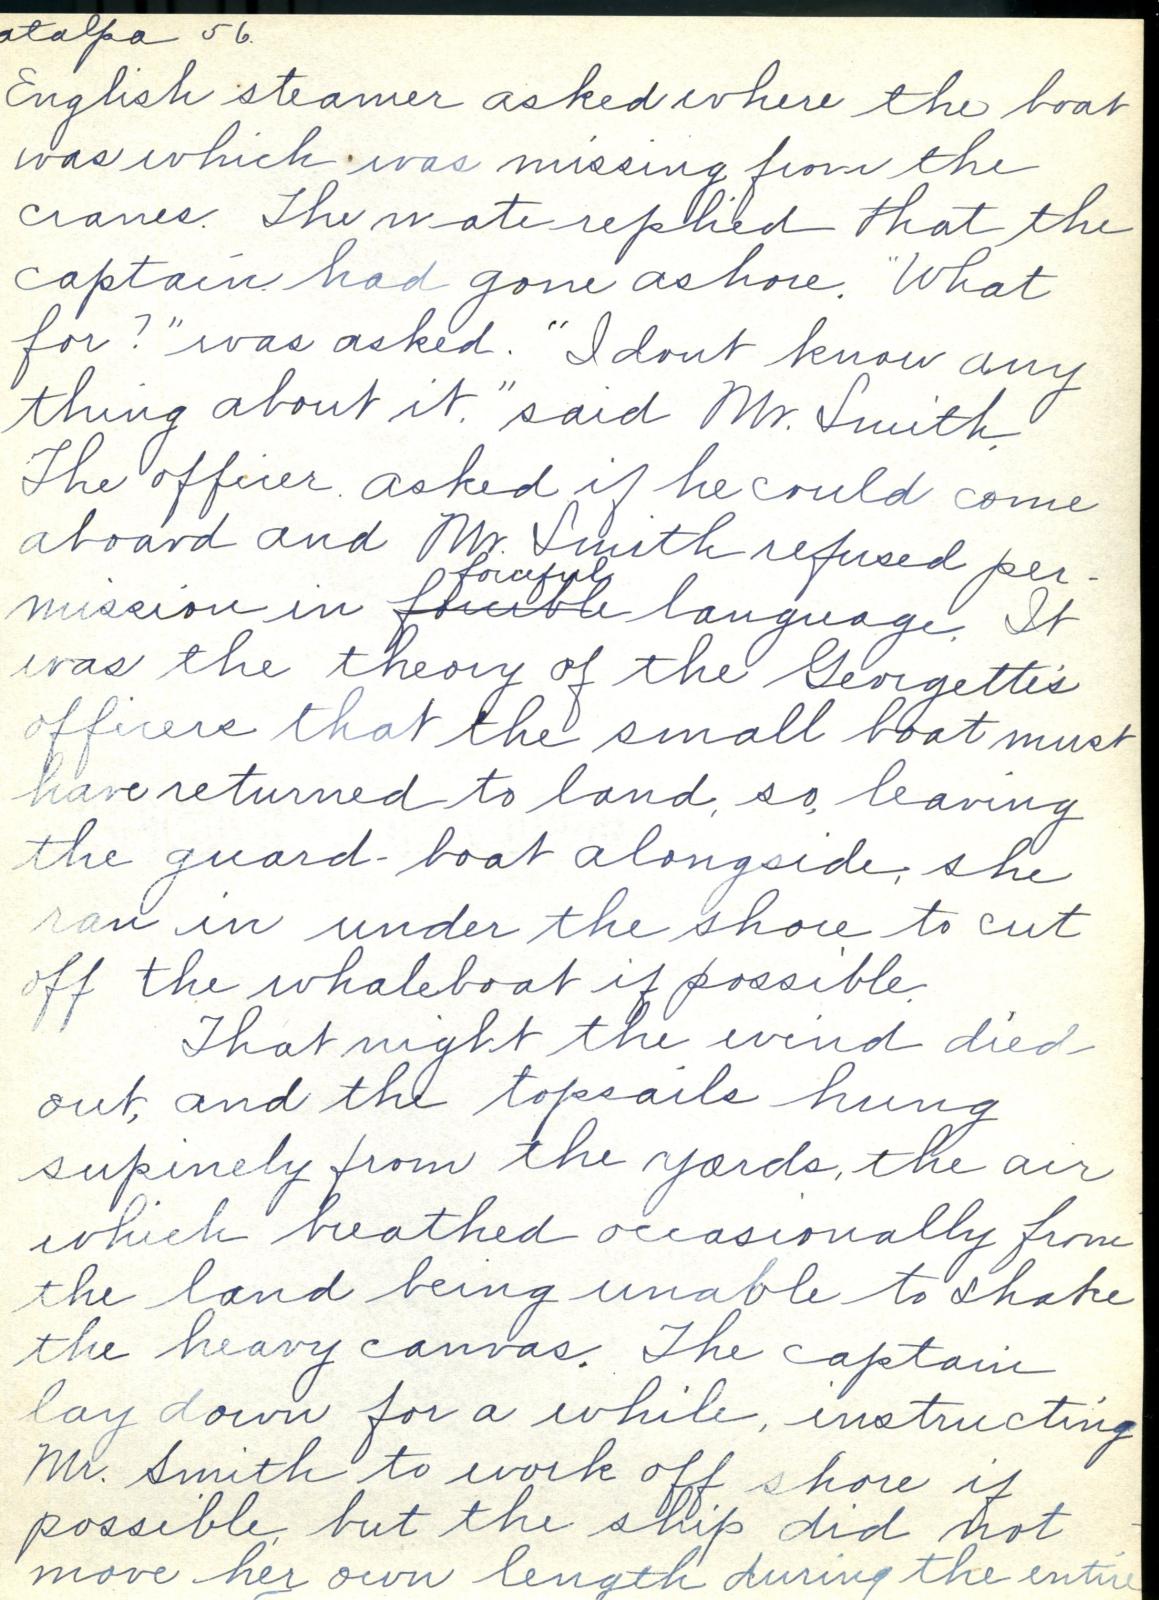 atalpa 56.
English steamer asked where the boat
was which was missing from the
cranes. The mate replied that the
captain had gone ashore. "What
for?" was asked. "I dont know any
thing about it." said Mr. Smith.
The officer asked if he could come
aboard and Mr. Smith refused per-
forceful
mission in forcible language. It
was the theory of the Georgette's
officers that the small boat must
have returned to land, so, leaving
the guard-boat alongside, she
ran in under the shore to cut
off the whaleboat if possible.
That night the wind died
out, and the topsails hung
supinely from the yards, the air
which breathed occasionally from
the land being unable to shake
the heavy canvas. The captain
lay down for a while, instructing
Mr. Smith to work off shore if
possible, but the ship did not
move her own length during the entire